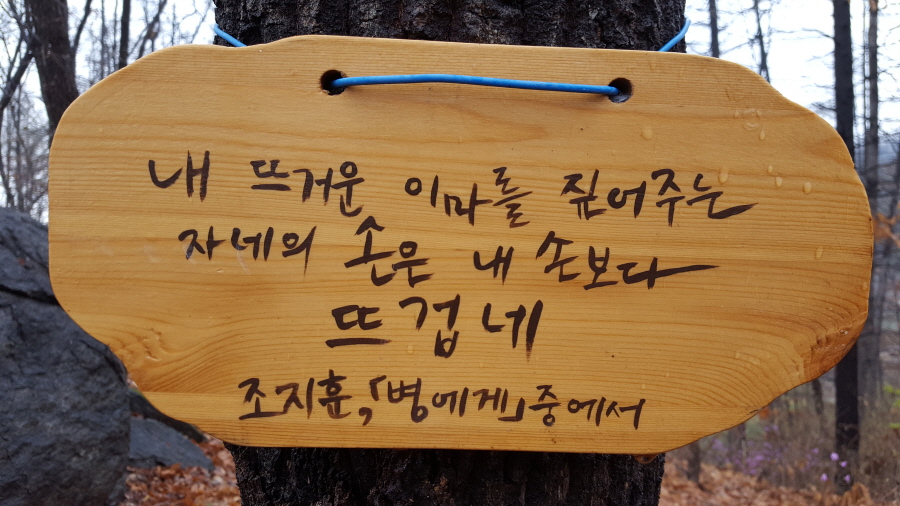 내 뜨거운 이마를 짚어주는
자네의 손은 내 손보다
뜨겁네
조지훈, 「병에게」 중에서